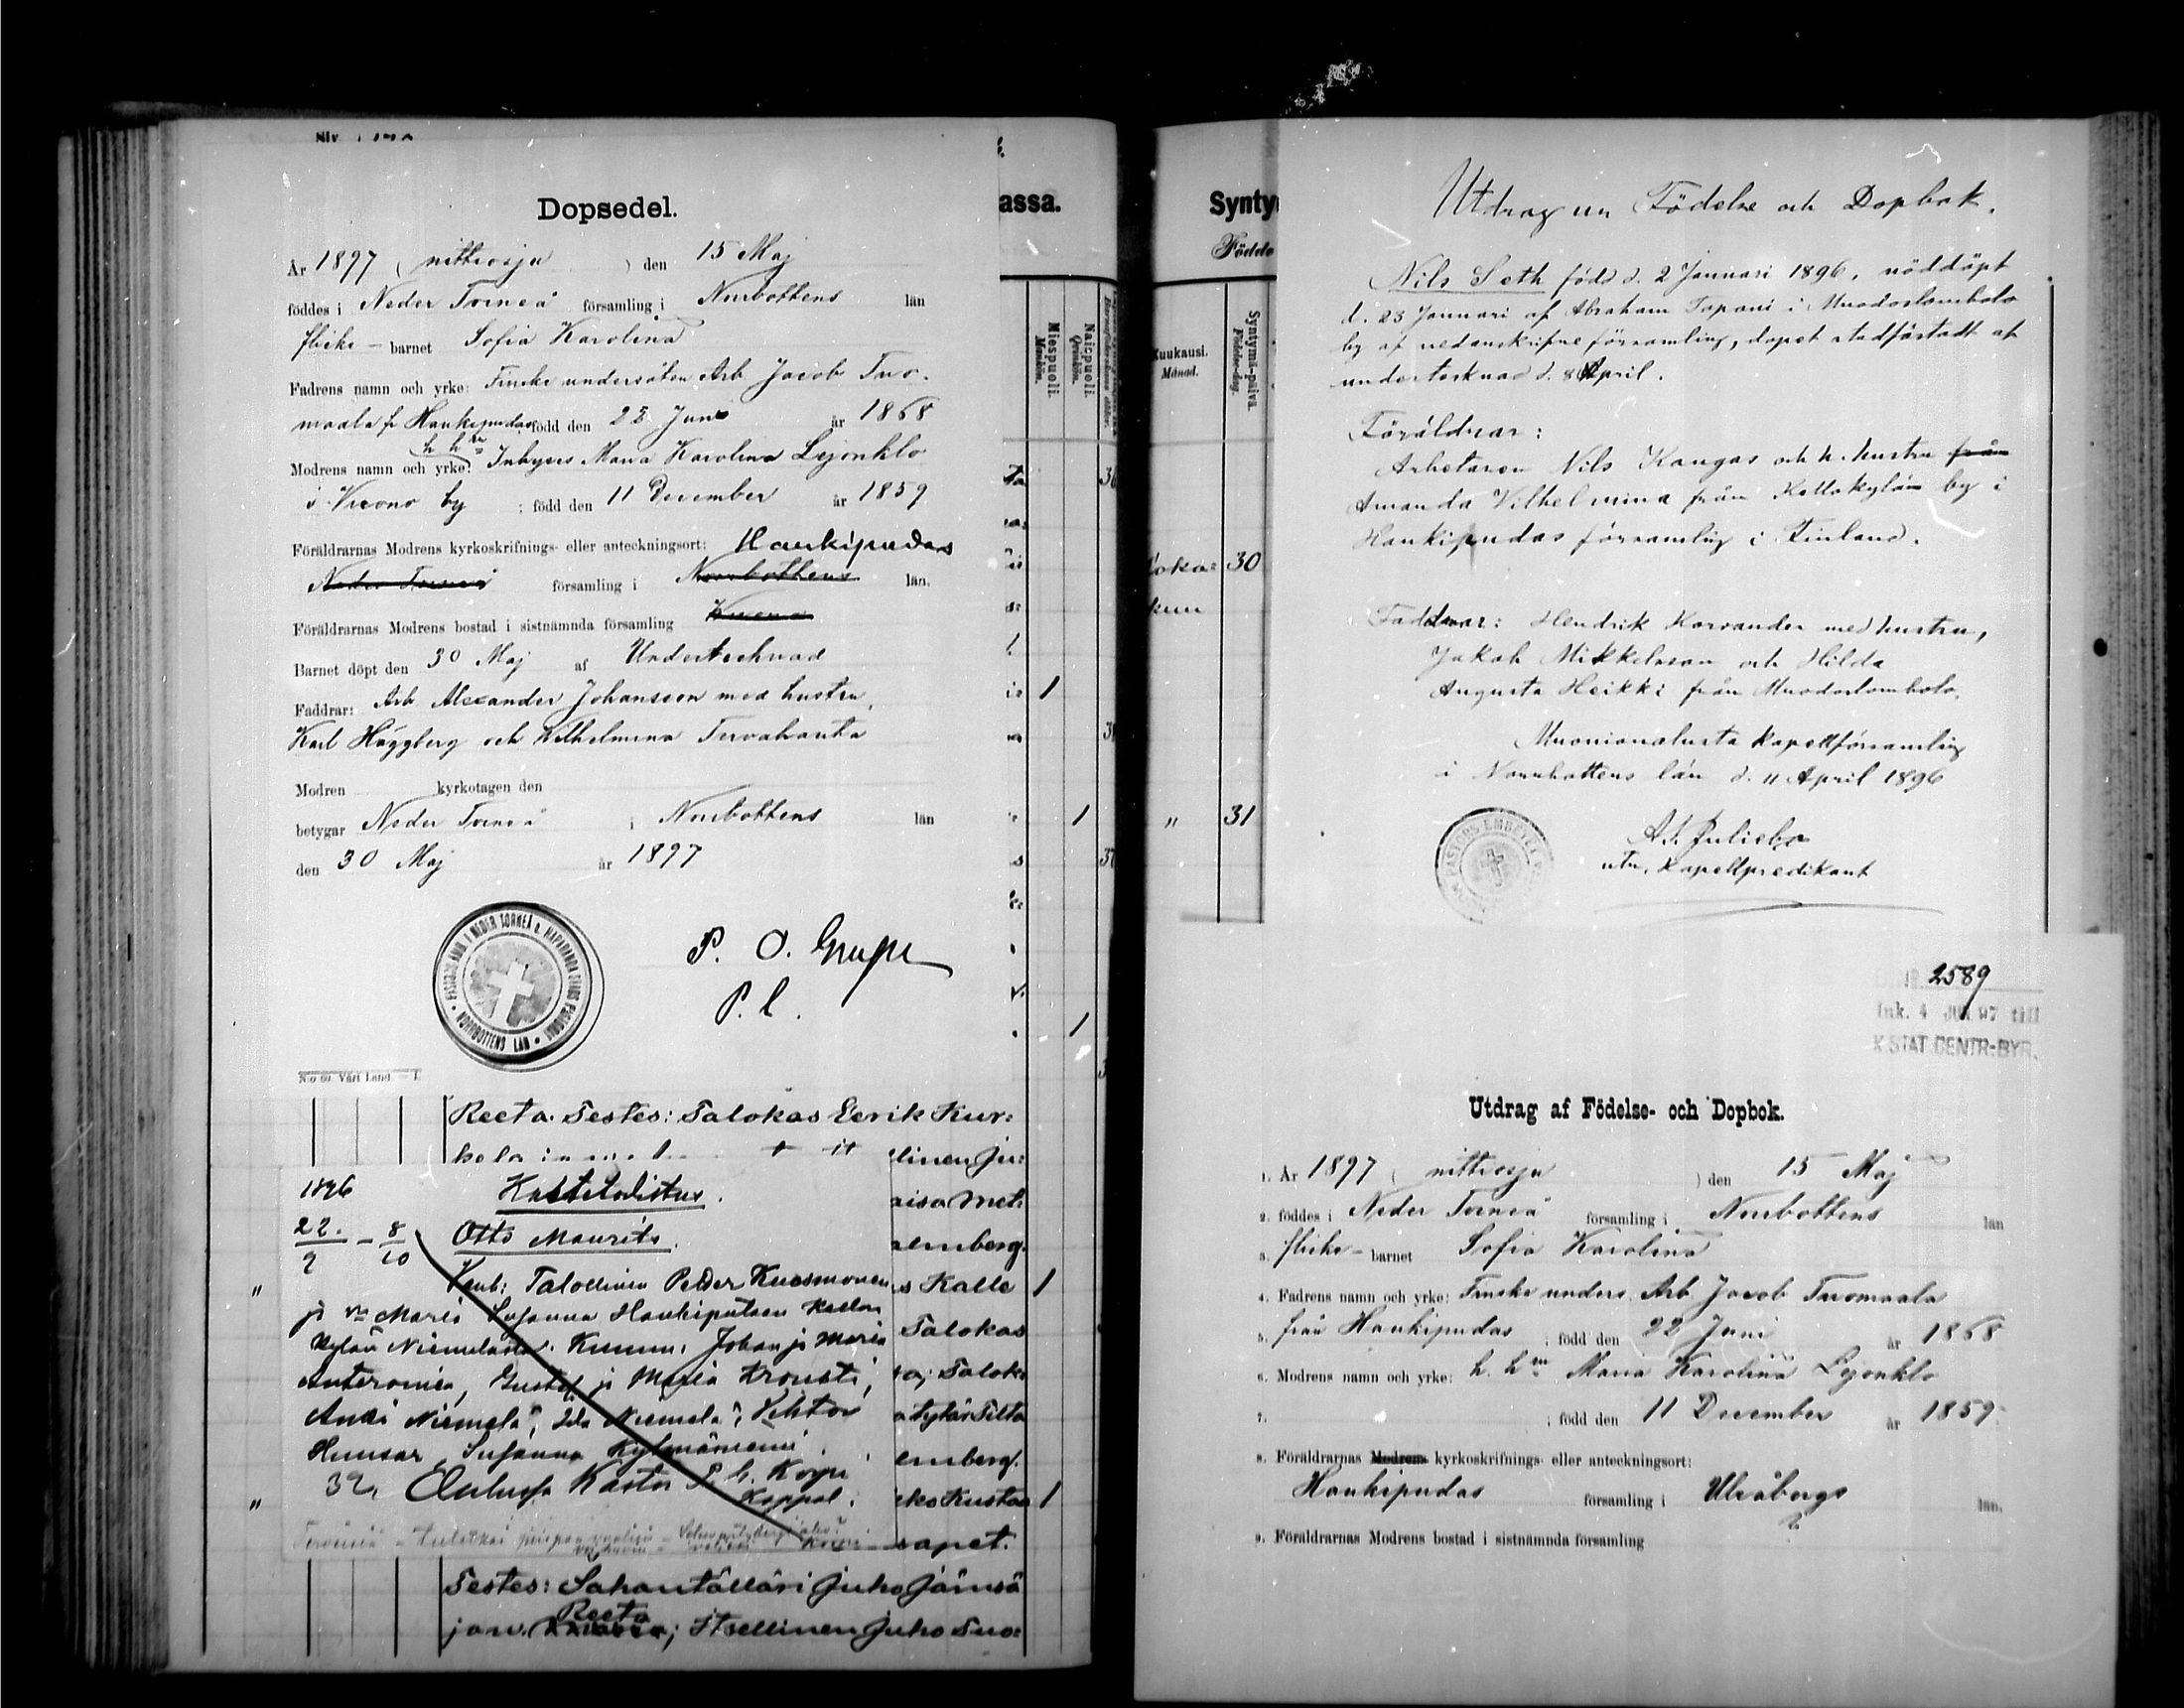 Dopsedel.
År 1897 ( nittiosju ) den 15 Maj
föddes i Neder Torneå församling i Norrbottens län
flicke- barnet Sofia Karolina
Fadrens namn och yrke: Finske undersåten Arb. Jacob Tuo-
maala fr Haukipudas född den 22 Juni år 1868
h. h:u
Modrens namn och yrke: Inhyses Maria Karolina Lejonklo
i by ; född den 11 December år 1859
Föräldrarnas Modrens kyrkoskrifnings- eller anteckningsort: Haukipudas
Neder Torneå församling i Norrbottens län.
Föräldrarnas Modrens bostad i sistnämnda församling
Barnet döpt den 30 Maj af Undertecknad
Faddrar: Arb. Alexander Johansson med hustru,
Karl Häggberg och Wilhelmina Tervahauta
Modren kyrkotagen den
betygar Neder Torneå i Norrbottens län
den 30 Maj år 1897
P. O. Grape
P. l.
PASTORS ÄMB. I NEDER TORNEÅ o. HAPARANDA STADS PASTORAT • NORRBOTTENS LÄN •
N:o 60. Vårt Land. — 1.
assa.
Miespuoli.
Mankön.
Naispuoli.
Qvinkön.
1
1
1
Reeta. Testes: Talokas Eerik Kur=
1896
Kastetodistus.
22./9 - 8/10
Otto Maurits.
Vanh: Talollinen Petter Kuosmonen
ja v:o Maria Susanna Haukiputaan Kellon
kylän Niemelästä. Kumm. Johan ja Maria
Anteroinen, Gustaf ja Maria Krousti,
Anti Niemelä, Ida Niemelä, Viktor
Huusar, Susanna
32.
P. H. Korpi
Kappal.
linen Ju=
aisa Met=
remberg.
" s Kalle 1
Talokas
ta; Talok=
a tytär Tilta
emberg.
" eks Kustaa 1
sapet.
Testes: Sahantälläri Juho Jämsä
Reeta
ja v. ; Itsellinen Juho Tuo=
Synty
Födde
Kuukausi.
Månad.
Syntymä-päivä.
Födelse-dag.
loka= 30
kuu
" 31
Utdrag ur Födelse och Dopbok.
Nils Seth född d. 2 Januari 1896, nöddöpt
d. 23 Januari af Abraham Tapani i Muodoslombolo
by af nedanskrifne församling, dopet stadfästadt af
undertecknad d. 8 April.
Föräldrar:
Arbetaren Nils Kangas och h. hustru från
Amanda Vilhelmina från Kellokylän by i
Haukipudas församling i Finland.
Faddrar: Hendrik Korvander med hustru,
Jakob Mikkelsson och Hilda
Augusta Heikki från Muodoslombolo.
Muonionalusta kapellförsamling
i Norrbottens län d. 11 April 1896
utn. kapellpredikant
2589
Ink. 4 JUN 97 till
K STAT CENTR-BYR.
Utdrag af Födelse- och Dopbok.
1. År 1897 ( nittiosju ) den 15 Maj
2. föddes i Neder Torneå församling i Norrbottens län
3. flicke- barnet Sofia Karolina
4. Fadrens namn och yrke: Finske unders. Arb. Jacob Tuomaala
5. från Haukipudas ; född den 22 Juni år 1868
6. Modrens namn och yrke: h. h:u Maria Karolina Lejonklo
7. ; född den 11 December år 1859
8. Föräldrarnas Modrens kyrkoskrifnings- eller anteckningsort:
Haukipudas församling i Uleåborgs län.
9. Föräldrarnas Modrens bostad i sistnämnda församling